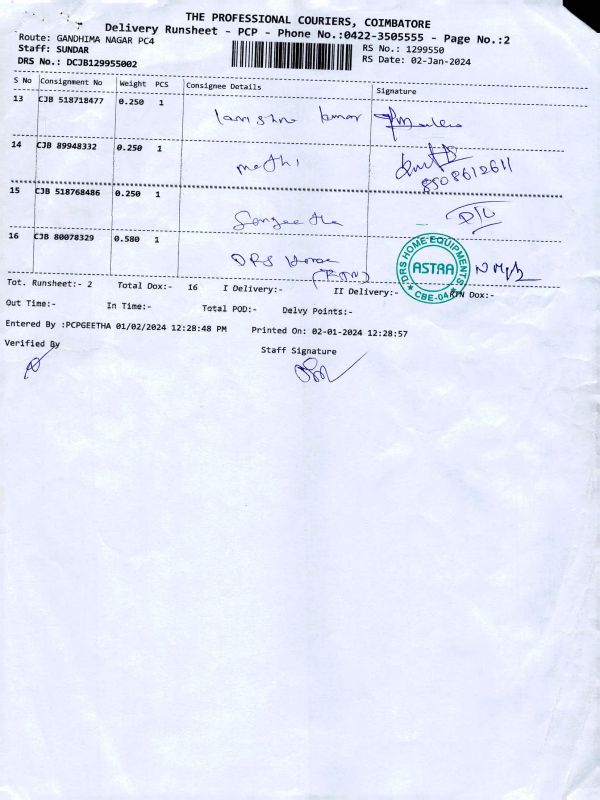 THE PROFESSIONAL COURIERS, COIMBATORE
Delivery Runsheet - PCP - Phone No.:0422-3505555 - Page No.:2
Route: GANDHIMA NAGAR PC4
RS No.: 1299550
Staff: SUNDAR
RS Date: 02-Jan-2024
DRS No.: DCJB129955002
S No Consignment No Weight PCS Consignee Details Signature
13 CJB 518718477 0.250 1 kumar
14 CJB 89948332 0.250 1 mathi
8508612611
15 CJB 518768486 0.250 1 Sangeetha D/L
16 CJB 80078329 0.580 1 DRS Home
DRS HOME EQUIPMENTS
ASTRA
CBE-04
Tot. Runsheet:- 2 Total Dox:- 16 I Delivery:- II Delivery:- RTN Dox:-
Out Time:- In Time:- Total POD:- Delvy Points:-
Entered By :PCPGEETHA 01/02/2024 12:28:48 PM Printed On: 02-01-2024 12:28:57
Verified By Staff Signature